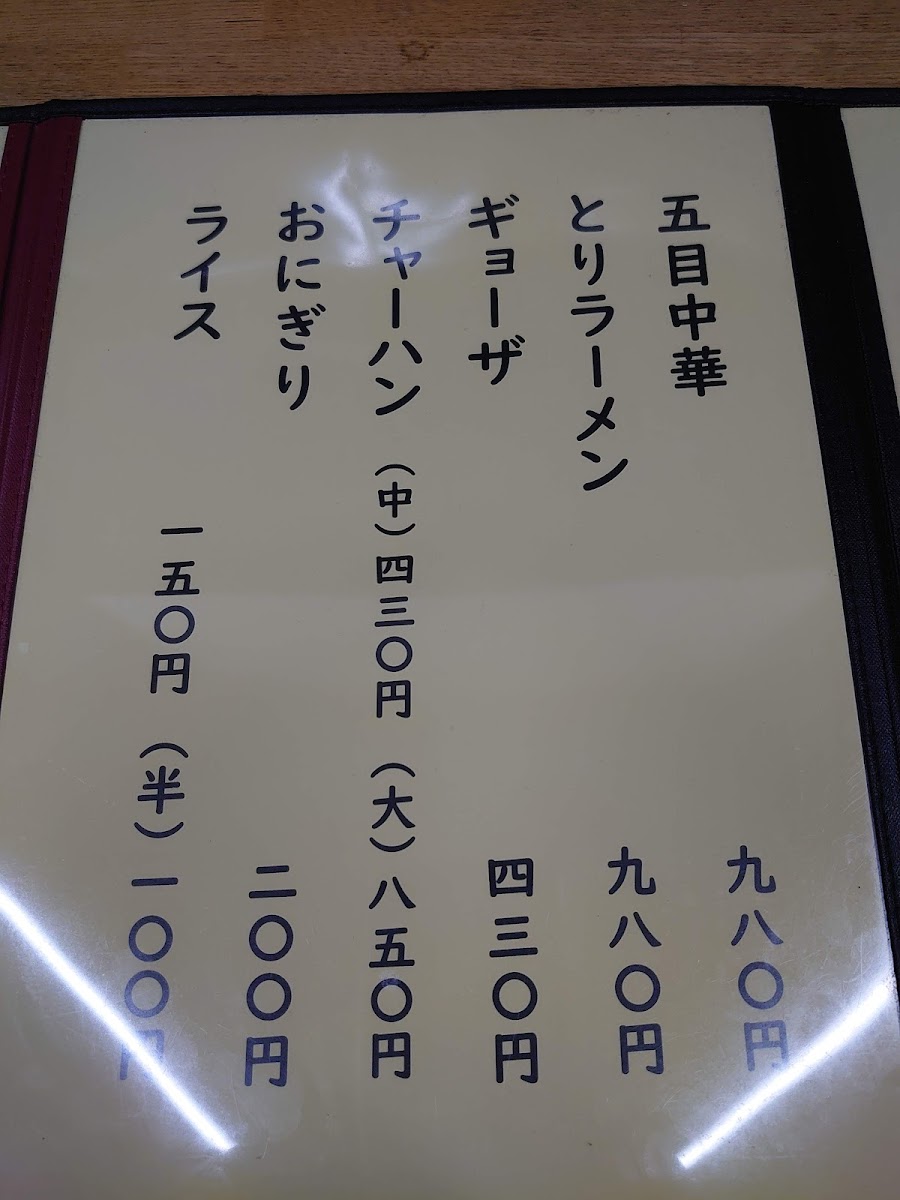 五目中華 九八〇円
とりラーメン 九八〇円
ギョーザ 四三〇円
チャーハン (中)四三〇円 (大)八五〇円
おにぎり 二〇〇円
ライス 一五〇円 (半)一〇〇円